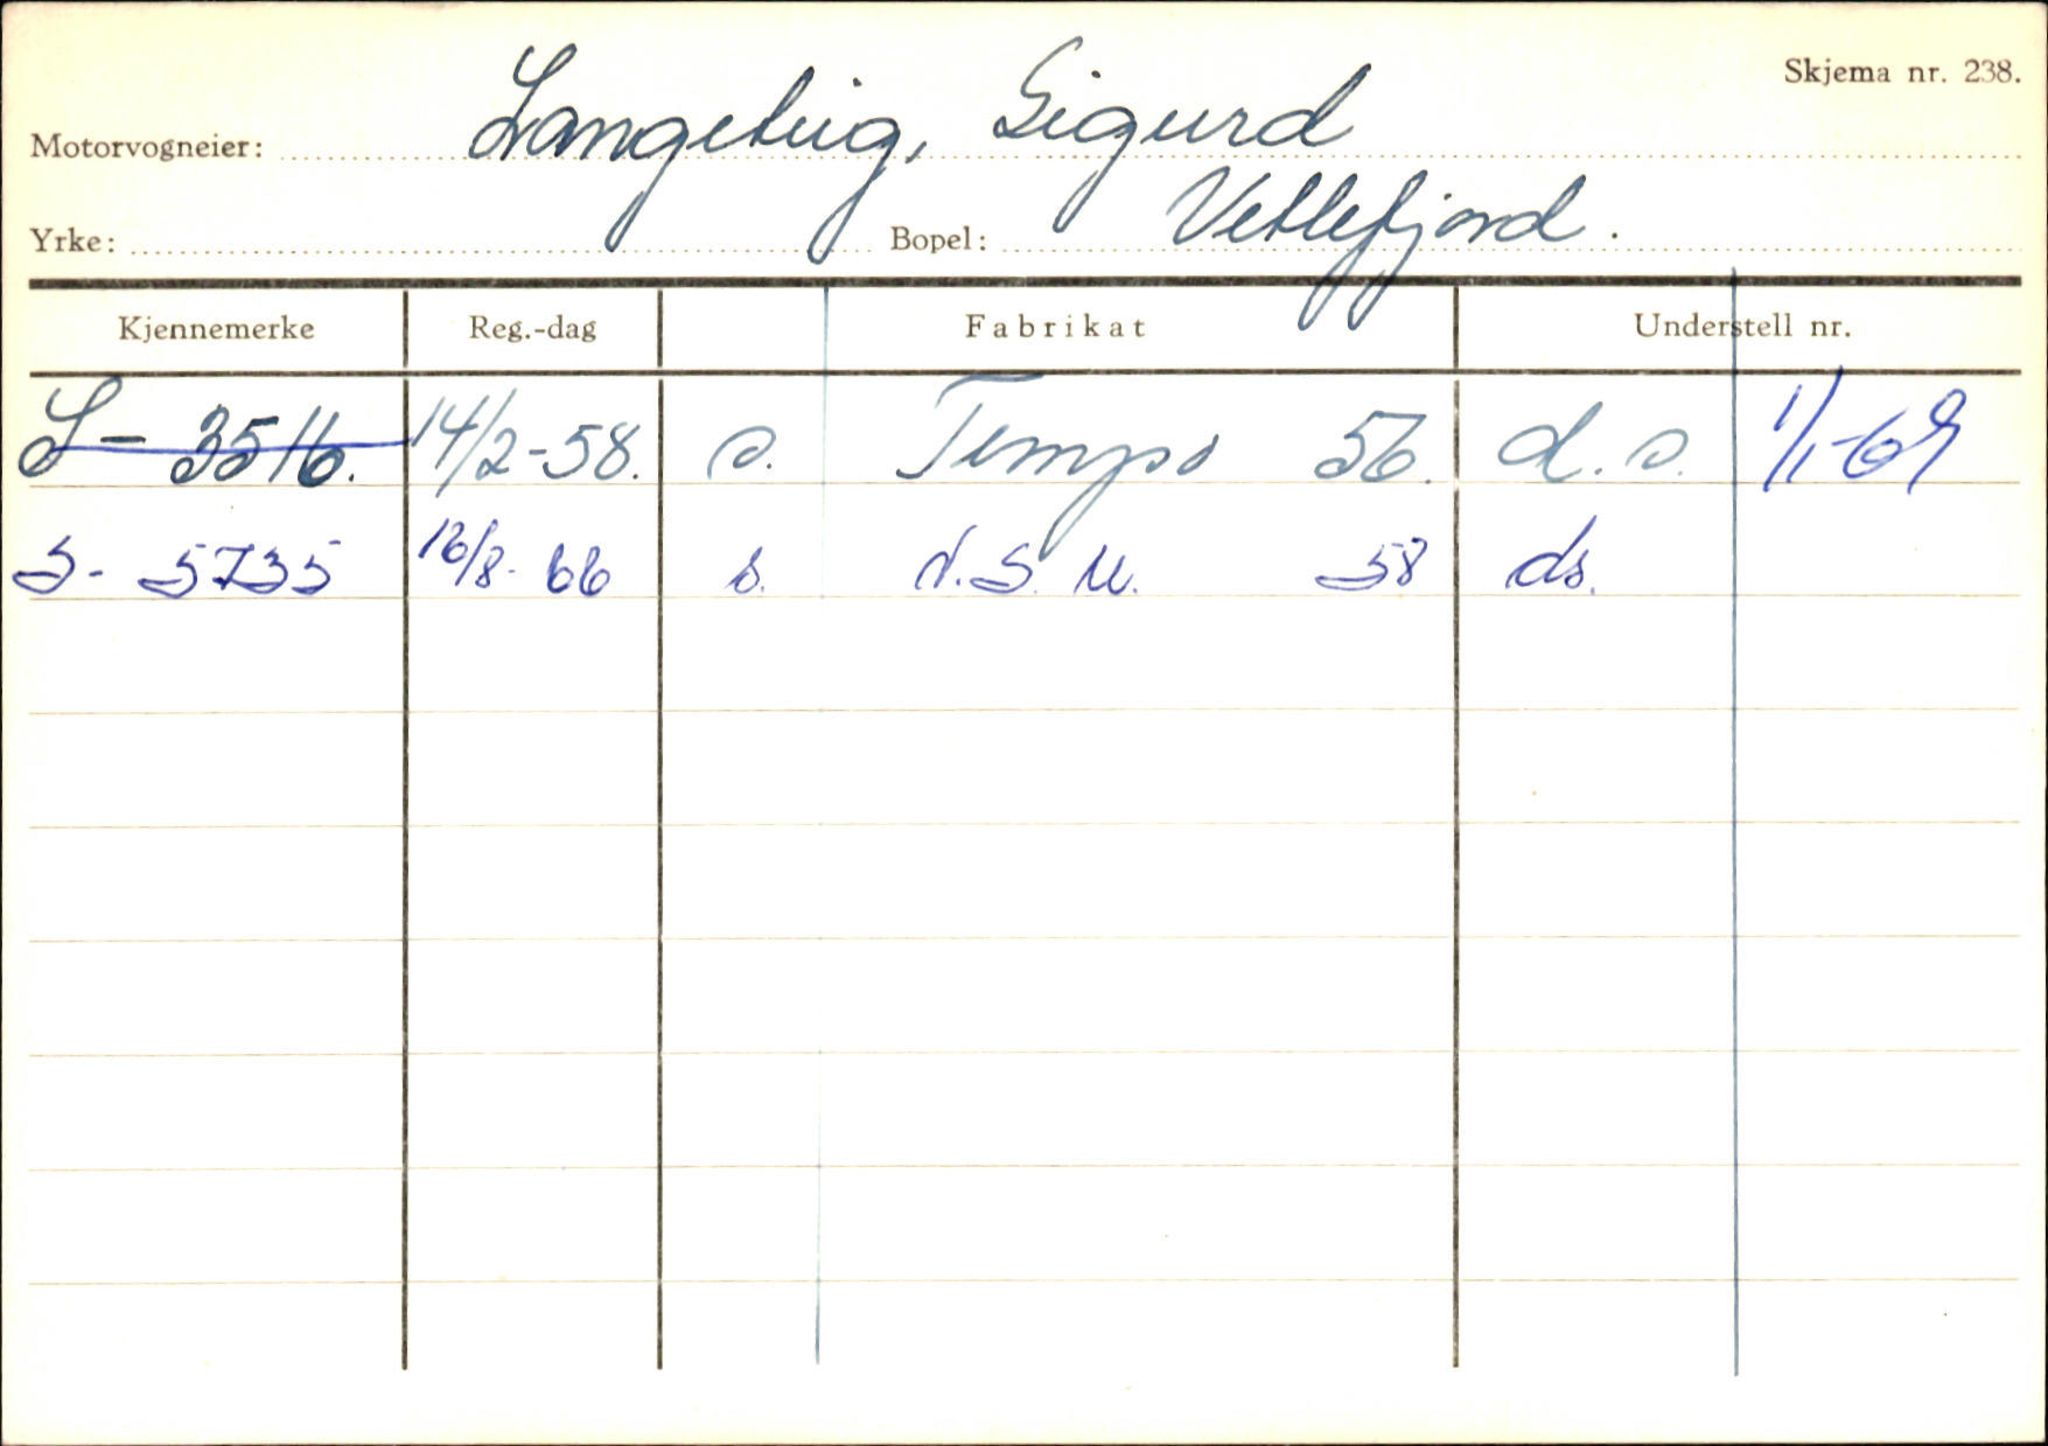 Skjema nr. 238.
Motorvogneier: Langeteig, Sigurd
Yrke: Bopel: Vetlefjord.
Kjennemerke Reg.-dag Fabrikat Understell nr.
S- 3516. 14/2-58. s. Tempo 56. d.s. 1/1-69
S- 5735 16/8-66 s. N.S.U. 58 ds.